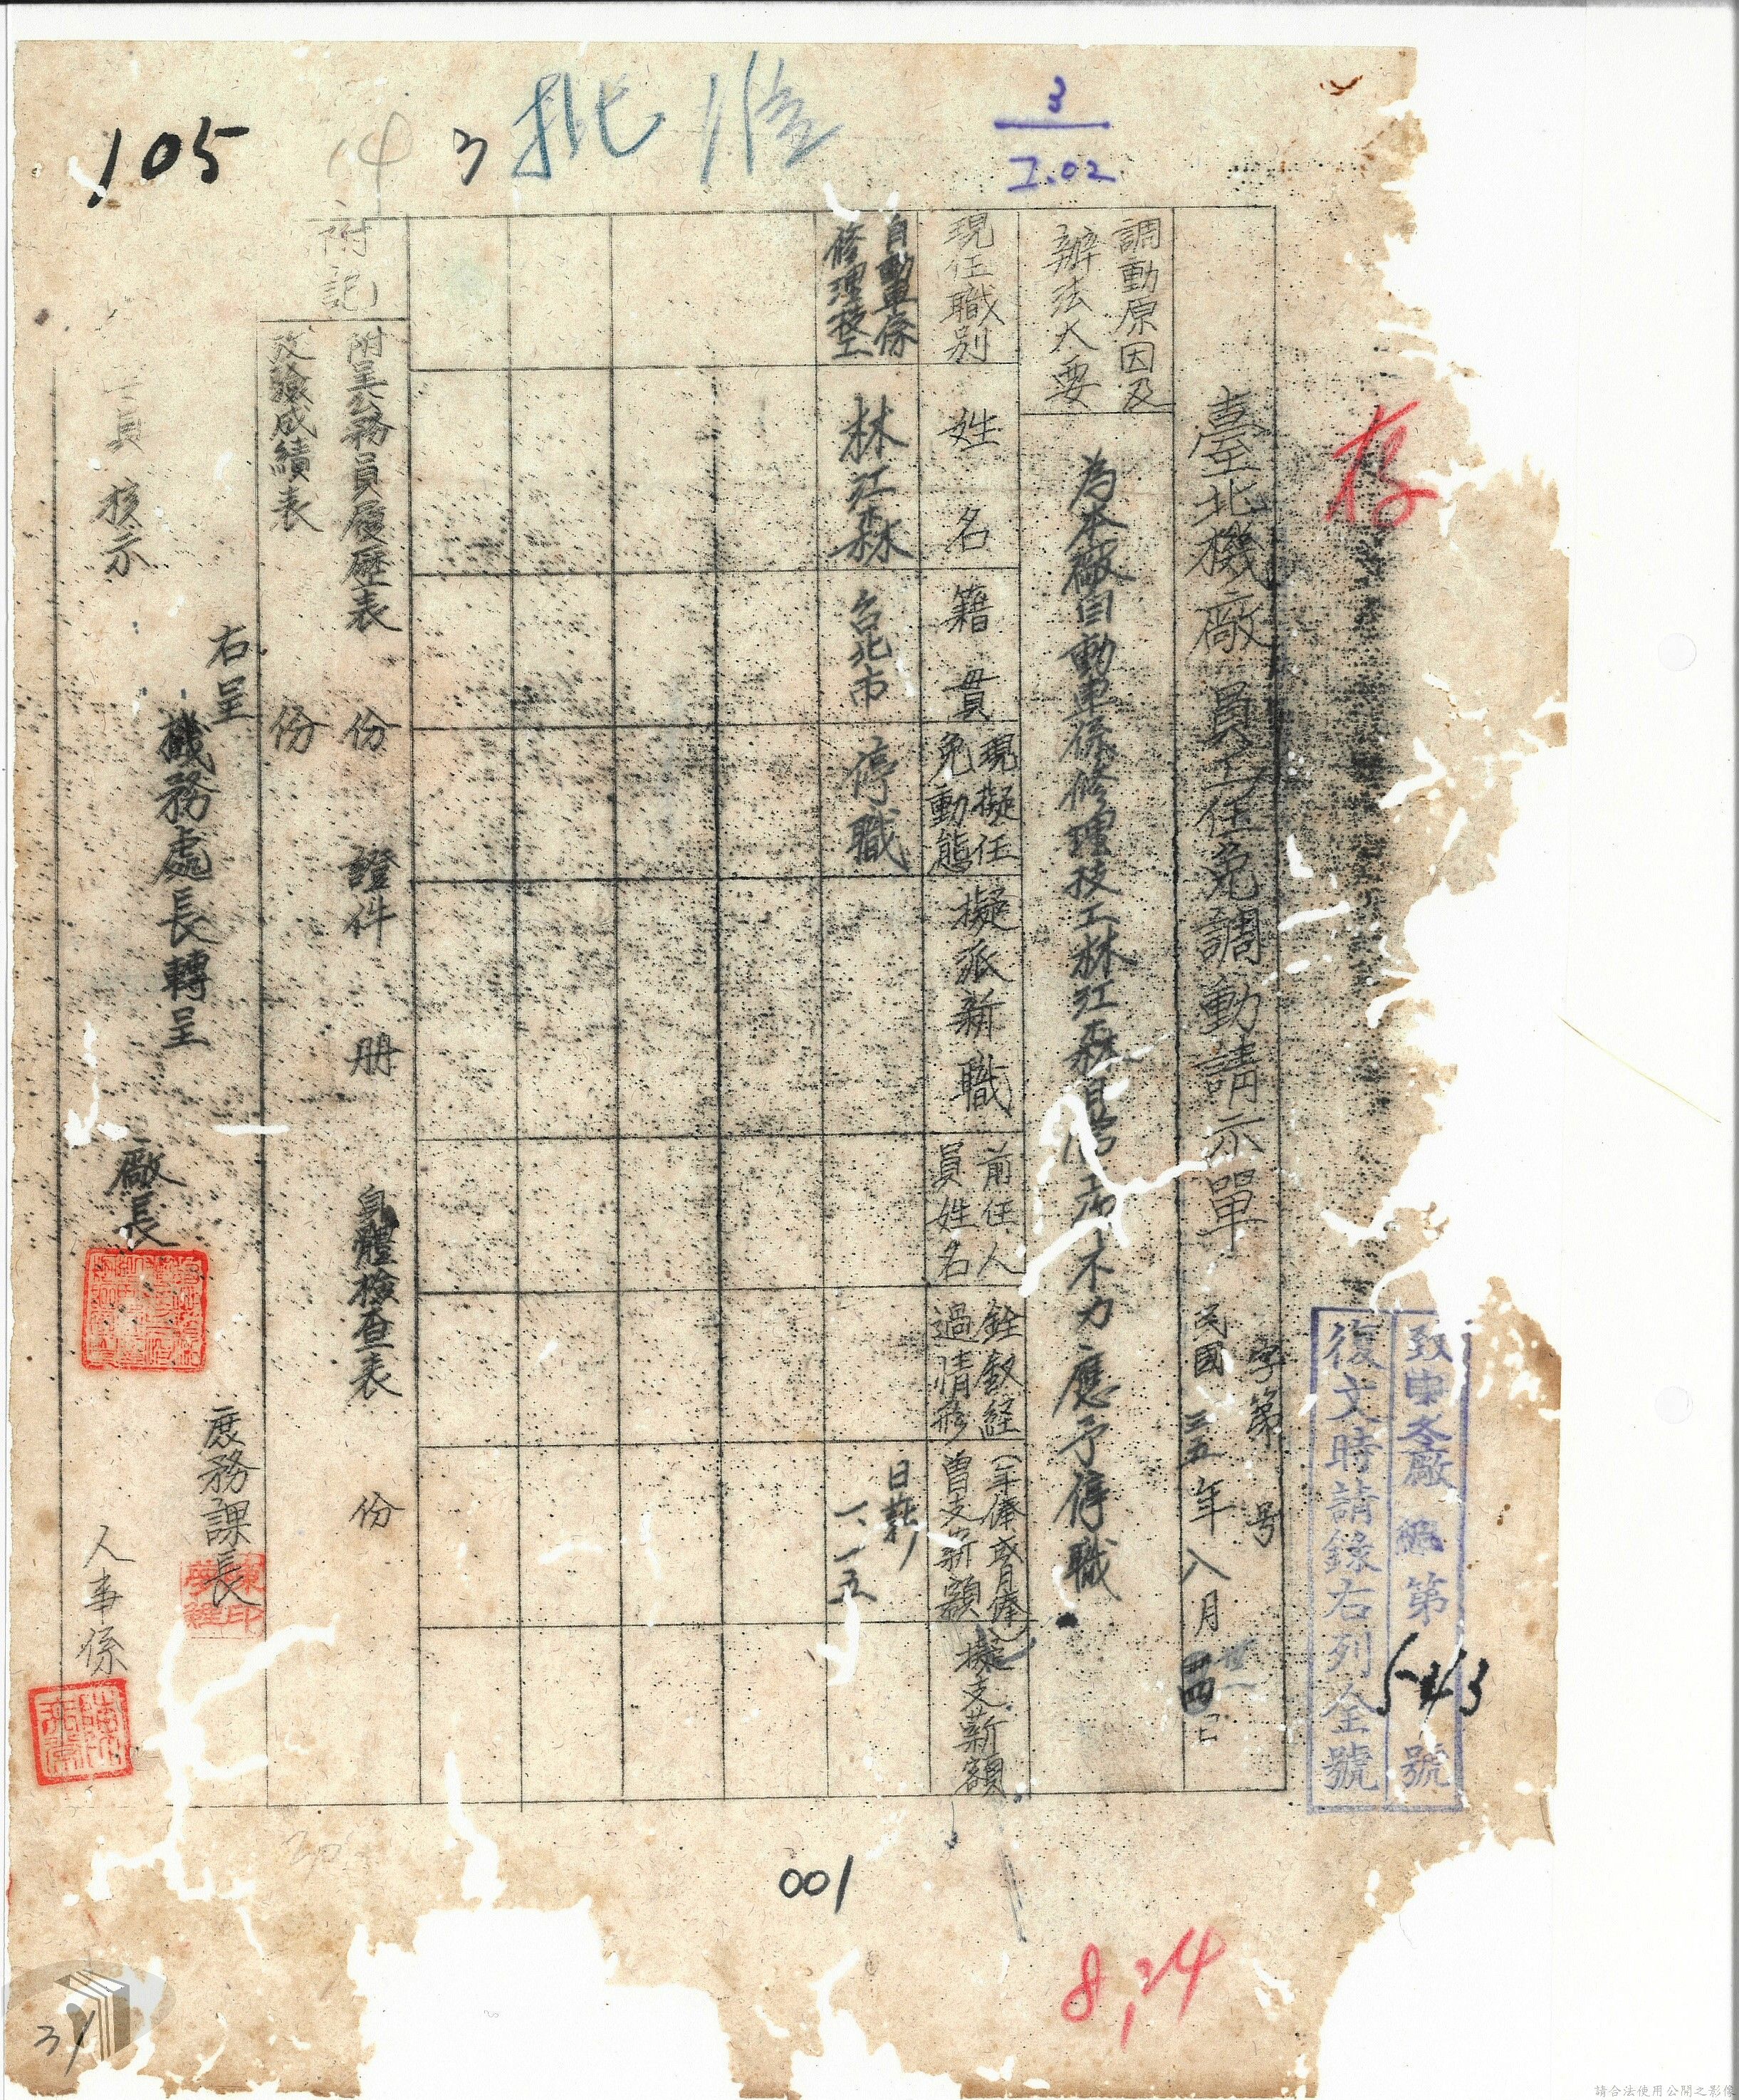 105
批准
3
I.02
存
致中文廠 第543號
復文時請錄右列全號
字第 号
臺北機廠員工任免調動請示單 民國三五年八月廿四日
調動原因及
辦法大要
為本廠自動車係修理技工林江森 不力應予停職
現任職別 姓名 籍貫 現擬任免動態 擬派新職 前任人員姓名 銓敘經過情形 (年俸或月俸)曾支薪額 擬支薪額
自動車係修理技工 林江森 台北市 停職 日薪 一、一五
附記
附呈公務員履歷表 份 證件 册 身體檢查表 份
攷驗成績表 份
右呈
機務處長轉呈
長核示
廠長
庶務課長
人事係
001
8,24
31
請合法使用公開之影像